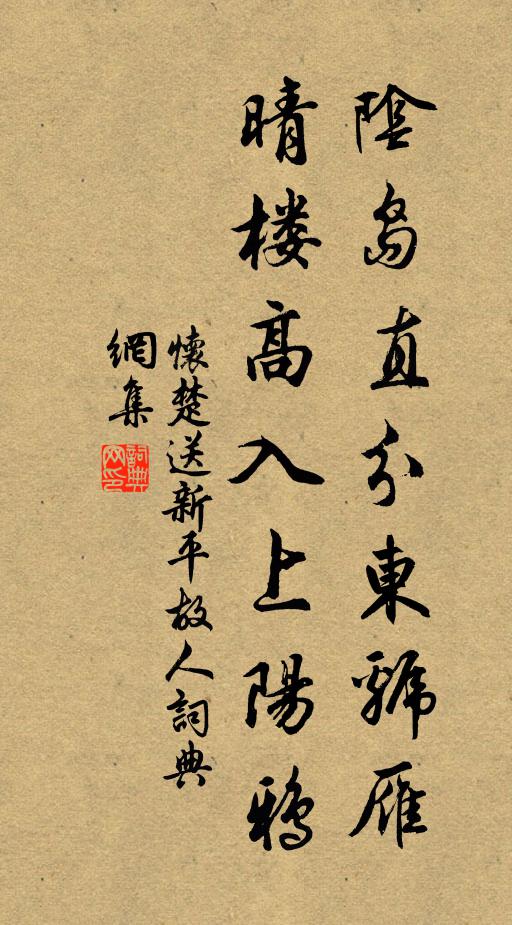 陰島直分東虢雁
晴楼高入上陽鴉
懷楚送新平故人詞典
網集
詞典網印